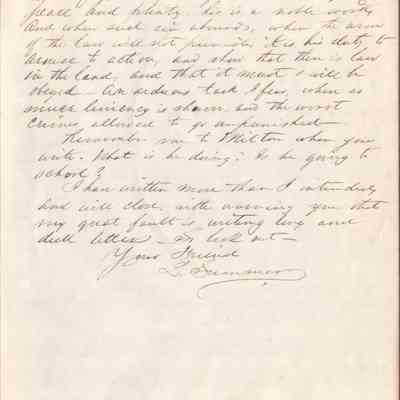 peace and plenty. his is a noble work,
And when such sin abounds, when the arm
of the law will not punish it is his duty to
arouse to action, and show that there is law
in the land, and that it must & will be
obeyed - An arduous task I fear, when so
much leniency is shown and the worst
crimes allowed to go unpunished
Remember me to Milton when you
write. What is he doing? Is he going to
school?
I have written more than I intended
and will close, with warning you that
my great fault is writing long and
dull letters - So look out -
Your Friend